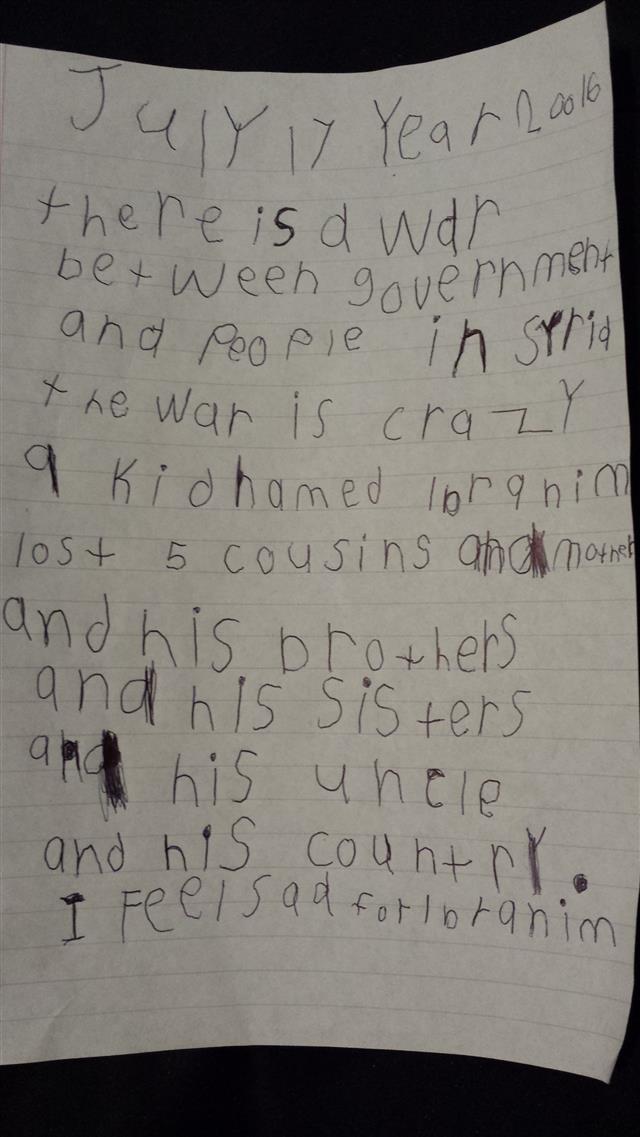 July 17 Year 20016
there is a war
between government
and people in syria
the war is crazy
a kid named Ibrahim
lost 5 cousins and mother
and his brothers
and his sisters
and his uncle
and his country.
I feel sad for Ibrahim